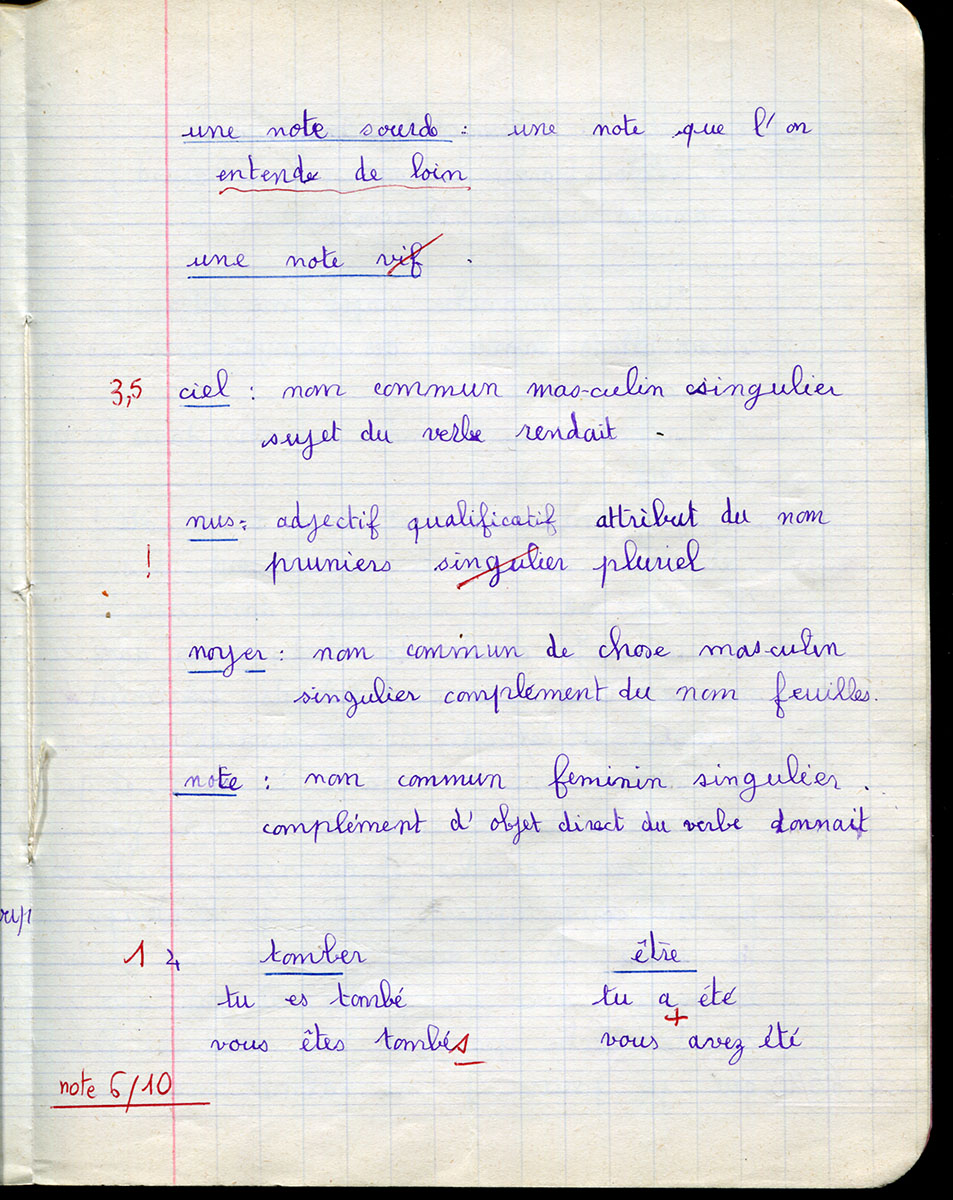 une note sourde : une note que l'on
entende de loin
une note vif .
3,5 ciel : nom commun masculin singulier
sujet du verbe rendait .
nus : adjectif qualificatif attribut du nom
! pruniers singulier pluriel
noyer : nom commun de chose masculin
singulier complément du nom feuilles.
note : nom commun feminin singulier .
complément d'objet direct du verbe donnait
1 4 tomber être
tu es tombé tu a été
+
vous êtes tombés vous avez été
note 6/10